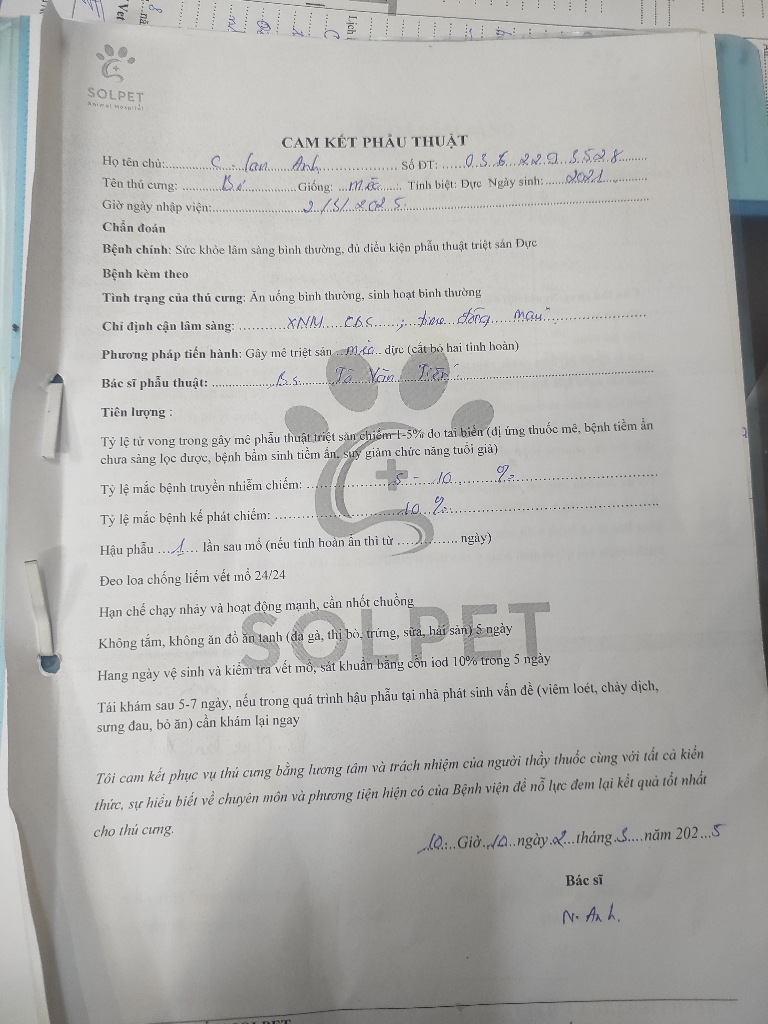 SOLPET
Animal Hospital
CAM KẾT PHẪU THUẬT
Họ tên chủ:.......C. Lan Anh....... Số ĐT: ......036 229 3528......
Tên thú cưng: .......Bé.......Giống: ...mèo..... Tính biệt: Đực Ngày sinh:.....2021.......
Giờ ngày nhập viện:.......2/3/2025.......
Chẩn đoán
Bệnh chính: Sức khỏe lâm sàng bình thường, đủ điều kiện phẫu thuật triệt sản Đực
Bệnh kèm theo
Tình trạng của thú cưng: Ăn uống bình thường, sinh hoạt bình thường
Chỉ định cận lâm sàng: ...........XNM CBC ; time đông máu...........
Phương pháp tiến hành: Gây mê triệt sản ...mèo.. đực (cắt bỏ hai tinh hoàn)
Bác sĩ phẫu thuật: .......Bs. Tô Văn Tiến.......
Tiên lượng :
Tỷ lệ tử vong trong gây mê phẫu thuật triệt sản chiếm 1-5% do tai biến (dị ứng thuốc mê, bệnh tiềm ẩn
chưa sàng lọc được, bệnh bẩm sinh tiềm ẩn, suy giảm chức năng tuổi già)
Tỷ lệ mắc bệnh truyền nhiễm chiếm: .......5 - 10 %.......
Tỷ lệ mắc bệnh kế phát chiếm: .......10 %.......
Hậu phẫu ...1.... lần sau mổ (nếu tinh hoàn ẩn thì từ ................ ngày)
Đeo loa chống liếm vết mổ 24/24
Hạn chế chạy nhảy và hoạt động mạnh, cần nhốt chuồng
Không tắm, không ăn đồ ăn tanh (da gà, thị bò, trứng, sữa, hải sản) 5 ngày
SOLPET
Hang ngày vệ sinh và kiểm tra vết mổ, sát khuẩn bằng cồn iod 10% trong 5 ngày
Tái khám sau 5-7 ngày, nếu trong quá trình hậu phẫu tại nhà phát sinh vấn đề (viêm loét, chảy dịch,
sưng đau, bỏ ăn) cần khám lại ngay
Tôi cam kết phục vụ thú cưng bằng lương tâm và trách nhiệm của người thầy thuốc cùng với tất cả kiến
thức, sự hiểu biết về chuyên môn và phương tiện hiện có của Bệnh viện để nỗ lực đem lại kết quả tốt nhất
cho thú cưng.
..10...Giờ..10..ngày.2...tháng.3....năm 202...5
Bác sĩ
N. Anh.